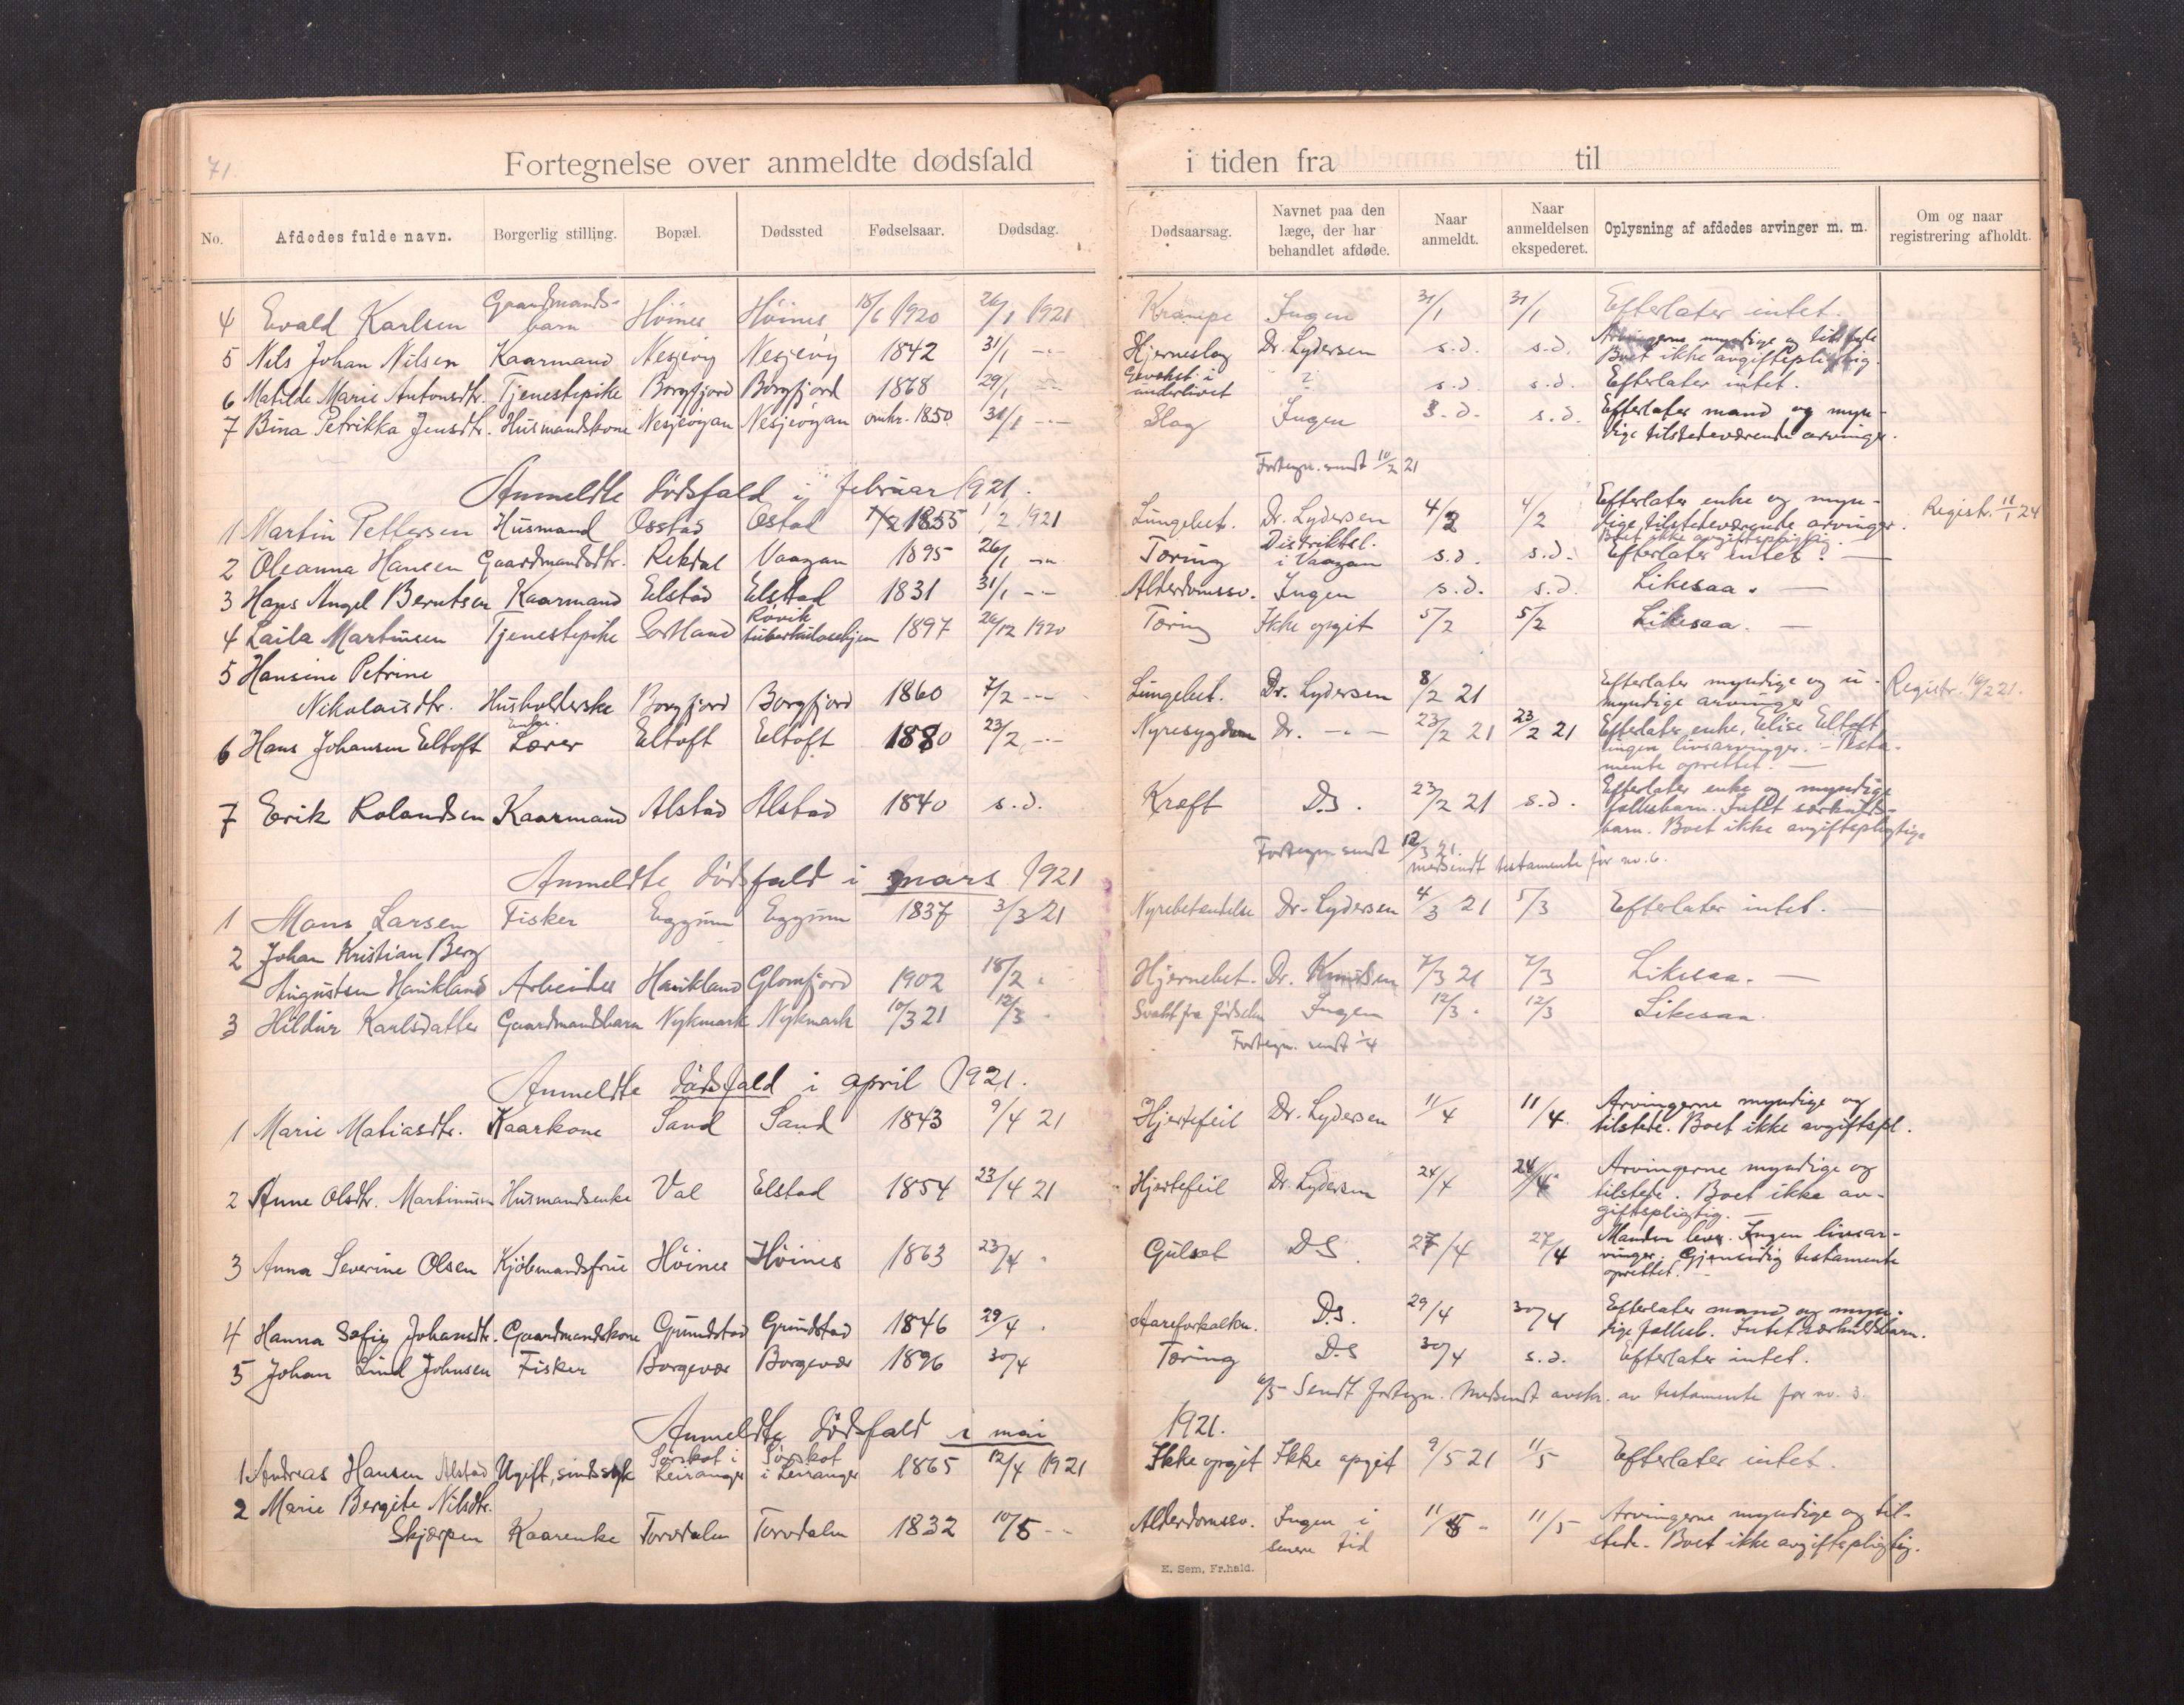 71.
Fortegnelse over anmeldte dødsfald i tiden fra til
No. Afdødes fulde navn. Borgerlig stilling. Bopæl. Dødssted Fødselsaar. Dødsdag. Dødsaarsag. Navnet paa den læge, der har behandlet afdøde. Naar anmeldt. Naar anmeldelsen ekspederet. Oplysning af afdødes arvinger m. m. Om og naar registrering afholdt.
4 Evald Karlsen Gaardmands-barn Höines Höines 18/6 1920 26/1 1921 Krampe Ingen 31/1 31/1 Efterlater intet.
5 Nils Johan Nilsen Kaarmand Nesjevög Nesjevög 1842 31/1 -"- Hjerneslag Dr. Lydersen s.d. s.d. Arvingerne myndige og tilstede Boet ikke avgiftspligtig.
6 Matilde Marie Antonsdtr. Tjenestepike Borgfjord Borgfjord 1868 29/1 -"- Gevekst i underlivet ? s.d. s.d. Efterlater intet.
7 Bina Petrikka Jensdtr. Husmandskone Nesjevögan Nesjevögan omkr. 1850 31/1 -"- Slag Ingen s.d. s.d. Efterlater mand og myn-
dige tilstedeværende arvinger.
Fortegn. sendt 10/2 21
Anmeldte dödsfald i februar 1921.
1 Martin Pettersen Husmand Ostad Ostad 1/2 1855 1/2 1921 Lungebet. Dr. Lydersen 4/2 4/2 Efterlater enke og myn-
dige tilstedeværende arvinger. Registr. 11/1 24
Boet ikke avgiftspligtig.
2 Oleanna Hansen Gaardmandsdtr. Rekdal Vaagan 1895 26/1 -"- Tæring Distriktsl. i Vaagan s.d. s.d. Efterlater intet.
3 Hans Angel Berntsen Kaarmand Elstad Elstad 1831 31/1 -"- Alderdomssv. Ingen s.d. s.d. Likesaa.
4 Laila Martinsen Tjenestepike Sortland Rövik tuberkulosehjem 1897 26/12 1920 Tæring Ikke opgit 5/2 5/2 Likesaa.
5 Hansine Petrine
Nikolaisdtr. Husholderske Borgfjord Borgfjord 1860 7/2 -"- Lungebet. Dr. Lydersen 8/2 21 Efterlater myndige og u-
myndige arvinger Registr. 16/2 21.
6 Hans Johansen Eltoft Lærer Eltoft Eltoft 1880 23/2 -"- Nyresygdom Dr. -"- 23/2 21 23/2 21 Efterlater enke, Elise Eltoft
ingen livsarvinger. - Testa-
mente oprettet.
7 Erik Rolandsen Kaarmand Alstad Alstad 1840 s.d. Kræft D.S. 23/2 21 s.d. Efterlater enke og myndige
fællesbarn. Intet særkuls-
barn. Boet ikke avgiftspligtig
Fortegn. sendt 12/3 21.
medsendt testamente for no. 6.
Anmeldte dödsfald i mars 1921
1 Mons Larsen Fisker Eggum Eggum 1837 3/3 21 Nyrebetændelse Dr. Lydersen 4/3 21 5/3 Efterlater intet.
2 Johan Kristian Berg
Augustsen Haukland Arbeider Haukland Glomfjord 1902 18/2 Hjernebet. Dr. Knudsen 7/3 21 7/3 Likesaa.
3 Hildur Karlsdatter Gaardmandsbarn Nykmark Nykmark 10/3 21 12/3 Svakt fra fødselen Ingen 12/3 12/3 Likesaa.
Fortegn. sendt 1/4
Anmeldte dödsfald i april 1921.
1 Marie Matiasdtr. Kaarkone Sand Sand 1843 9/4 21 Hjertefeil Dr. Lydersen 11/4 11/4 Arvingerne myndige og
tilstede. Boet ikke avgiftspl.
2 Anne Olsdtr. Martinusen Husmandsenke Val Elstad 1854 23/4 21 Hjertefeil Dr. Lydersen 24/4 24/4 Arvingerne myndige og
tilstede. Boet ikke av-
giftspligtig.
3 Anna Severine Olsen Kjöbmandsfrue Höines Höines 1863 23/4 Gulsot D.S. 27/4 27/4 Manden lever. Ingen livsar-
vinger. Gjensidig testamente
oprettet.
4 Hanna Sofie Johansdtr. Gaardmandskone Grundstad Grundstad 1846 29/4 Aareforkalkn. D.S. 29/4 30/4 Efterlater mand og myn-
dige fællesb. Intet særkulsbarn.
5 Johan Lind Johnsen Fisker Borgevær Borgevær 1896 30/4 Tæring D.S 30/4 s.d. Efterlater intet.
6/5 Sendt fortegn. Medsendt avskr. av testamente for no. 3.
Anmeldte dödsfald i mai 1921.
1 Andreas Hansen Alstad Ugift, sindssyk Sörskot i Leiranger Sörskot i Leiranger 1865 12/4 1921 Ikke opgit Ikke opgit 9/5 21 11/5 Efterlater intet.
2 Marie Bergite Nilsdtr.
Skjærpen Kaarenke Torvdalen Torvdalen 1832 10/5 -"- Alderdomssv. Ingen i senere tid 11/5 11/5 Arvingerne myndige og til-
stede. Boet ikke avgiftspligtig.
E. Sem, Fr.hald.